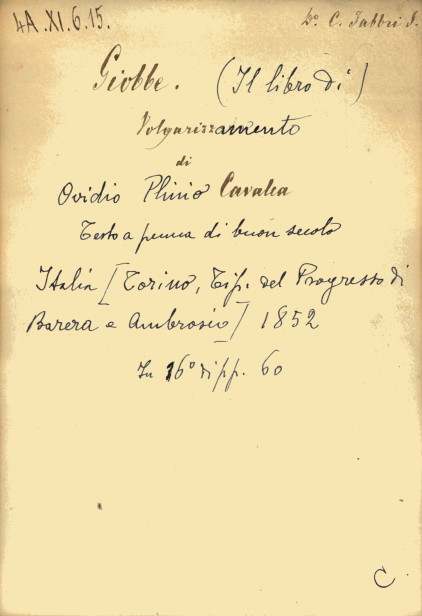 4A.XI.6.15.
Dº. C. Fabbri d.
Giobbe. (Il libro di)
Volgarizzamento
di
Ovidio Plinio Cavalca
Testo a penna di buon secolo
Italia [Torino, Tip. del Progresso di
Barera e Ambrosio] 1852
In 16º di pp. 60
C